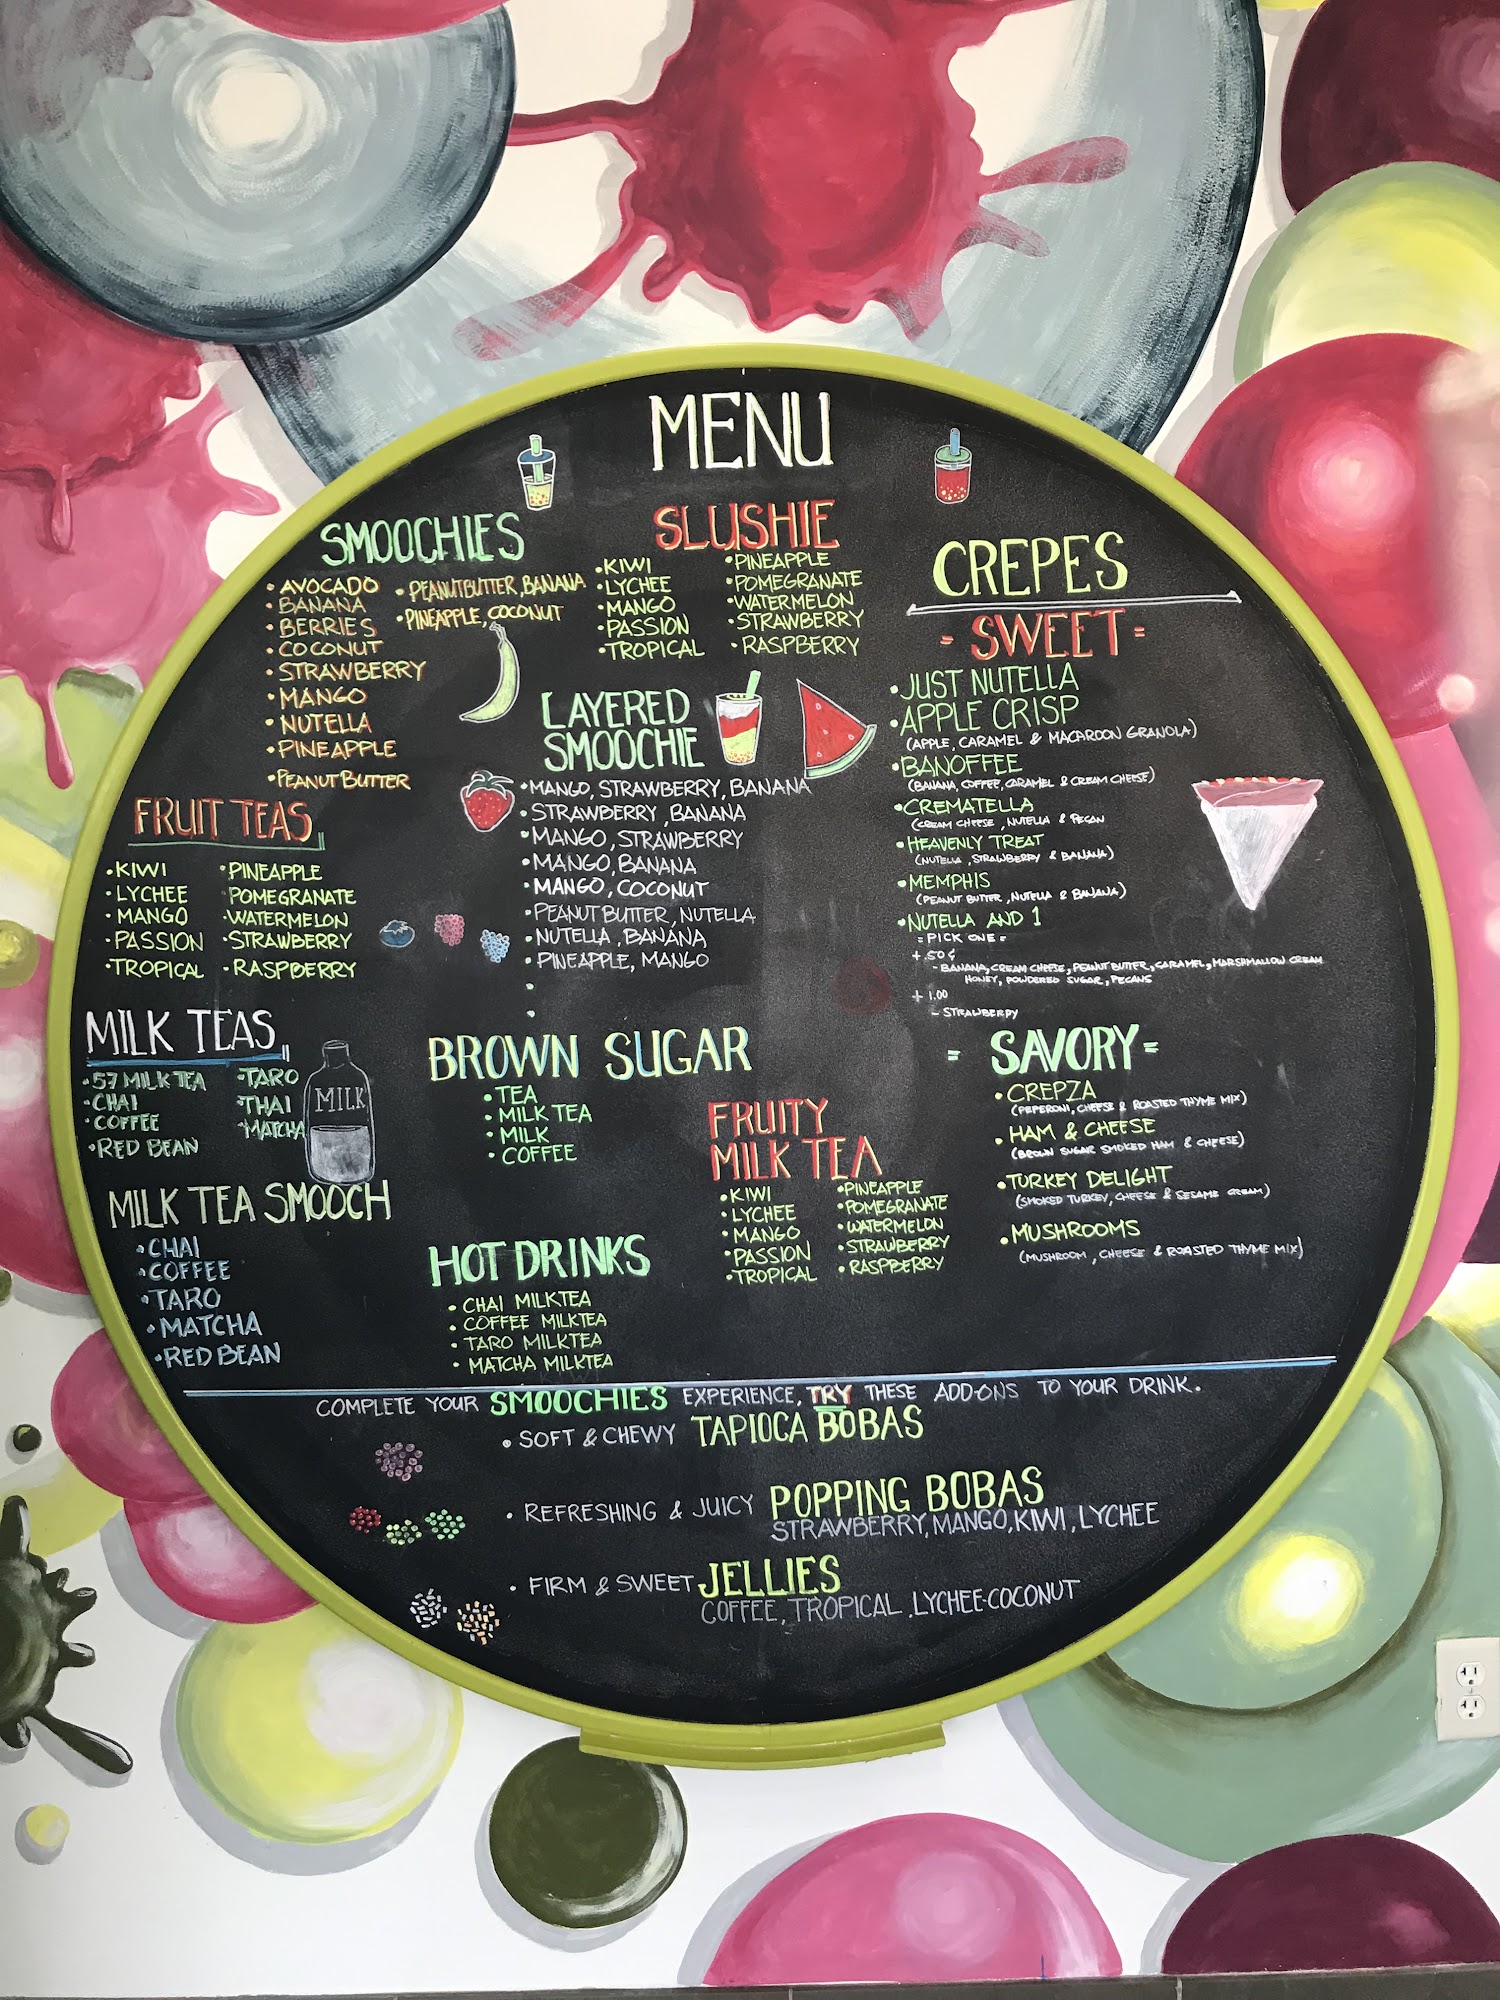 MENU
SMOOCHIES
• AVOCADO
• BANANA
• BERRIES
• COCONUT
• STRAWBERRY
• MANGO
• NUTELLA
• PINEAPPLE
• PEANUT BUTTER
• PEANUTBUTTER, BANANA
• PINEAPPLE, COCONUT
SLUSHIE
• KIWI
• LYCHEE
• MANGO
• PASSION
• TROPICAL
• PINEAPPLE
• POMEGRANATE
• WATERMELON
• STRAWBERRY
• RASPBERRY
LAYERED
SMOOCHIE
• MANGO, STRAWBERRY, BANANA
• STRAWBERRY, BANANA
• MANGO, STRAWBERRY
• MANGO, BANANA
• MANGO, COCONUT
• PEANUT BUTTER, NUTELLA
• NUTELLA, BANANA
• PINEAPPLE, MANGO
FRUIT TEAS
• KIWI
• LYCHEE
• MANGO
• PASSION
• TROPICAL
• PINEAPPLE
• POMEGRANATE
• WATERMELON
• STRAWBERRY
• RASPBERRY
MILK TEAS
• 57 MILK TEA
• CHAI
• COFFEE
• RED BEAN
• TARO
• THAI
• MATCHA
MILK
MILK TEA SMOOCH
• CHAI
• COFFEE
• TARO
• MATCHA
• RED BEAN
BROWN SUGAR
• TEA
• MILK TEA
• MILK
• COFFEE
HOT DRINKS
• CHAI MILKTEA
• COFFEE MILKTEA
• TARO MILKTEA
• MATCHA MILKTEA
FRUITY
MILK TEA
• KIWI
• LYCHEE
• MANGO
• PASSION
• TROPICAL
• PINEAPPLE
• POMEGRANATE
• WATERMELON
• STRAWBERRY
• RASPBERRY
CREPES
= SWEET =
• JUST NUTELLA
• APPLE CRISP
(APPLE, CARAMEL & MACAROON GRANOLA)
• BANOFFEE
(BANANA, COFFEE, CARAMEL & CREAM CHEESE)
• CREMATELLA
(CREAM CHEESE, NUTELLA & PECAN
• HEAVENLY TREAT
(NUTELLA, STRAWBERRY & BANANA)
• MEMPHIS
(PEANUT BUTTER, NUTELLA & BANANA)
• NUTELLA AND 1
= PICK ONE =
+ .50¢
- BANANA, CREAM CHEESE, PEANUT BUTTER, CARAMEL, MARSHMALLOW CREAM
HONEY, POWDERED SUGAR, PECANS
+ 1.00
- STRAWBERRY
= SAVORY =
• CREPZA
(PEPERONI, CHEESE & ROASTED THYME MIX)
• HAM & CHEESE
(BROWN SUGAR SMOKED HAM & CHEESE)
• TURKEY DELIGHT
(SMOKED TURKEY, CHEESE & SESAME CREAM)
• MUSHROOMS
(MUSHROOM, CHEESE & ROASTED THYME MIX)
COMPLETE YOUR SMOOCHIES EXPERIENCE, TRY THESE ADD-ONS TO YOUR DRINK.
• SOFT & CHEWY TAPIOCA BOBAS
• REFRESHING & JUICY POPPING BOBAS
STRAWBERRY, MANGO, KIWI, LYCHEE
• FIRM & SWEET JELLIES
COFFEE, TROPICAL, LYCHEE-COCONUT